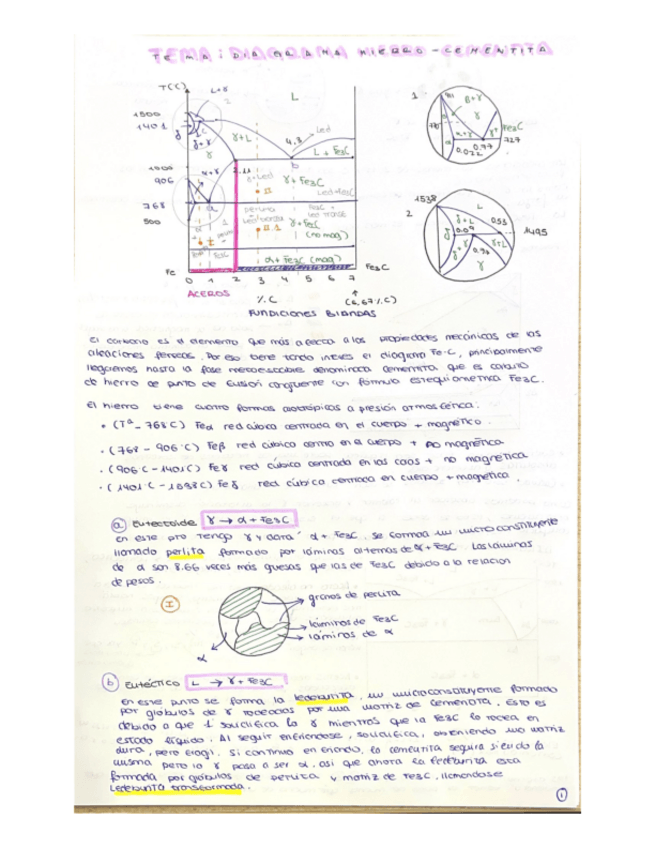 TEMA: DIAGRAMA HIERRO-CEMENTITA
T(C)
L+γ
L
1500
1401
γ+L
4,3
Led
L+Fe3C
γ
b
1000
906
2,11
γ+Fe3C
II
768
a
500
perlita
II.1
γ+Fe3C
(no mag)
I
α+Fe3C (mag)
Fe
0 1 2 3 4 5 6 7
Fe3C
ACEROS
%C
(6,67%C)
FUNDICIONES BLANDAS
1
Fe3C
0,77
727
0,022
2
1538
L
0,53
0.09
γ+L
1495
γ
El carbono es el elemento que más afecta a las propiedades mecánicas de las
aleaciones férreas. Por eso tiene tanto interés el diagrama Fe-C, principalmente
llegaremos hasta la fase metaestable denominada cementita que es
de hierro de punto de fusión congruente con fórmula estequiométrica Fe3C.
El hierro tiene cuatro formas alotrópicas a presión atmosférica:
• (Tª - 768C) Feα red cúbica centrada en el cuerpo + magnético.
• (768 - 906 C) Feβ red cúbica centro en el cuerpo + no magnética
• (906 C - 1401 C) Feγ red cúbica centrada en las caras + no magnética
• (1401 C - C) Fe red cúbica centrada en cuerpo + magnética.
a Eutectoide γ → α + Fe3C
en este pto tengo γ y dará α + Fe3C. Se forman un microconstituyente
llamado perlita formado por láminas alternas de α + Fe3C. Las láminas
de α son 8.66 veces más que las de Fe3C debido a la relación
de pesos.
I
granos de perlita
láminas de Fe3C
láminas de α
α
b Eutéctico L → γ + Fe3C
en este punto se forma la ledeburita, un microconstituyente formado
por glóbulos de γ rodeados por una matriz de cementita, esto es
debido a que 1º solidifica la γ mientras que la Fe3C lo rodea en
estado líquido. Al seguir enfriándose, solidifica, obteniendo una matriz
dura, pero frágil. Si continuo enfriando, la cementita seguirá siendo la
misma pero la γ pasa a ser α, así que ahora la ledeburita está
formada por glóbulos de perlita y matriz de Fe3C, llamándose
Ledeburita transformada.
1